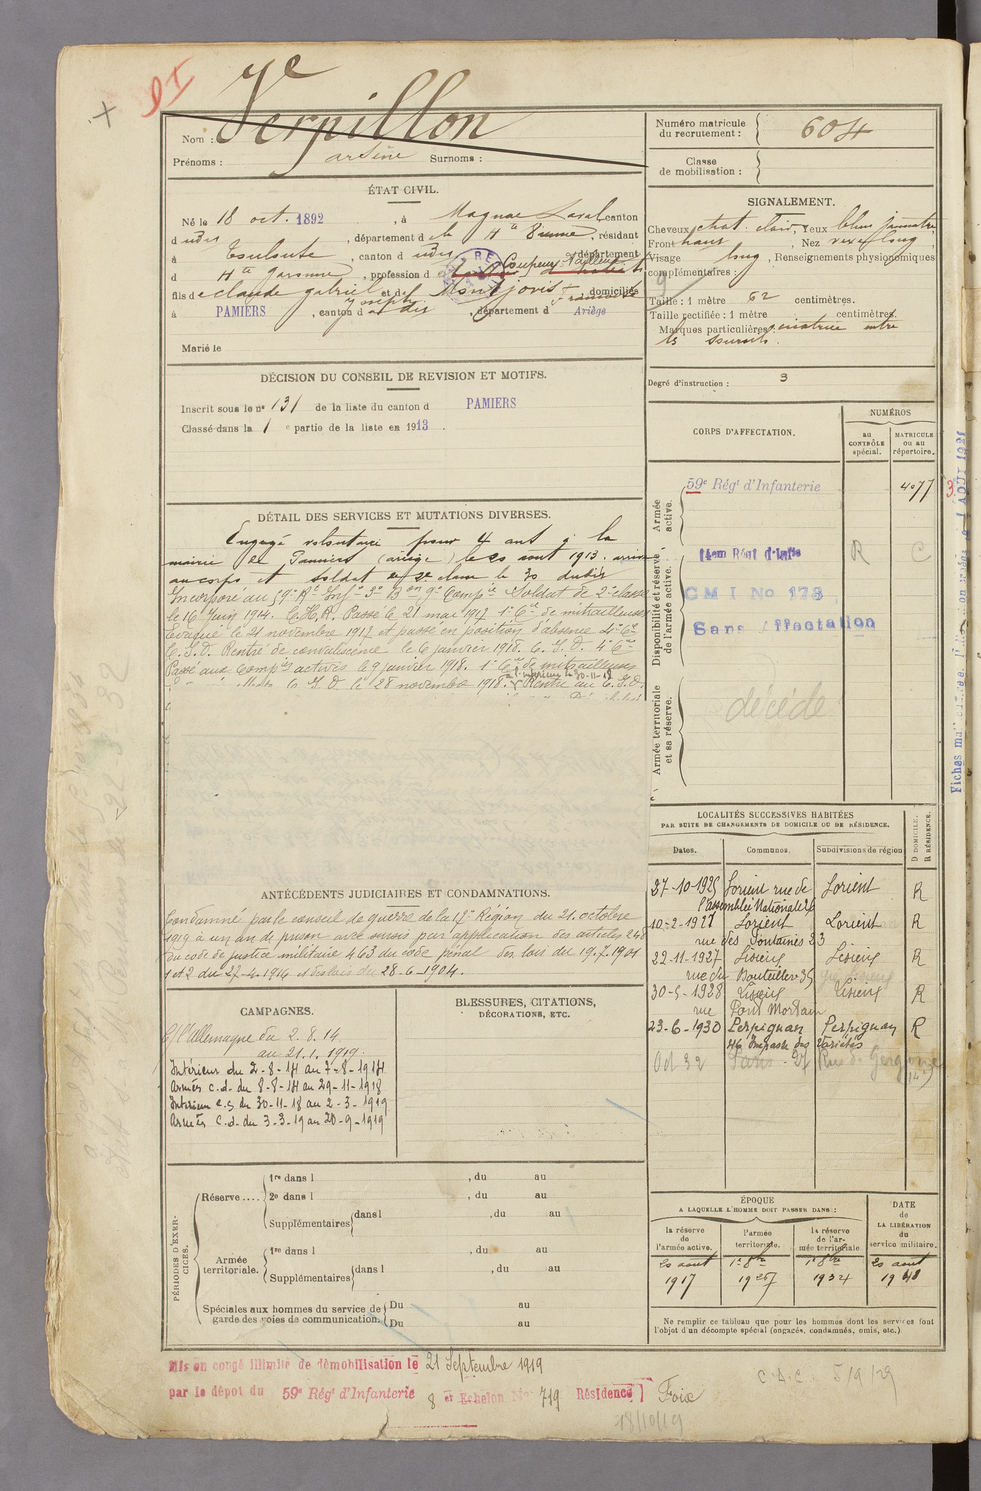 Verpillon
Nom :
Prénoms : arsène Surnoms :
Numéro matricule du recrutement : 604
Classe de mobilisation :
ÉTAT CIVIL.
Né le 18 oct. 1892, à Magnac Laval canton
dudit, département de la Hte Vienne, résidant
à Toulouse, canton dudit, département
d Hte Garonne, profession de Coupeur Tailleur
fils de Claude gabriel Joseph et de Montjovis Françoise, domiciliés
à PAMIERS, canton dudit, département d Ariège
Marié le
SIGNALEMENT.
Cheveux chat. clair, Yeux bleu
Front haut, Nez vexe long
Visage long, Renseignements physionomiques
complémentaires :
Taille : 1 mètre 62 centimètres.
Taille rectifiée : 1 mètre centimètres.
Marques particulières cicatrice entre
les sourcils.
Degré d'instruction : 3
DÉCISION DU CONSEIL DE REVISION ET MOTIFS.
Inscrit sous le no 131 de la liste du canton d PAMIERS
Classé dans la 1e partie de la liste en 1913.
CORPS D'AFFECTATION.
NUMÉROS
au CONTRÔLE spécial.
MATRICULE ou au répertoire.
Armée active.
59e Régt d'Infanterie 4077
Disponibilité et réserve de l'armée active.
14em Régt d'Infie R C
CMI No 178
Sans Affectation
Armée territoriale et sa réserve.
décédé
DÉTAIL DES SERVICES ET MUTATIONS DIVERSES.
Engagé volontaire pour 4 ans à la
mairie de Pamiers (ariège) le 20 aout 1913. arrivé
au corps et soldat de 2e classe le 20 dudit
Incorporé au 59e Rt Infie 3e Bon 9e Compie Soldat de 2e classe
le 16 Juin 1914. C.H.R. Passé le 21 mai 1917 1e Cie de mitrailleuses
Evacué le 21 novembre 1917 et passé en position d'absence 4e Cie
C.I.D. Rentré de convalescence le 6 janvier 1918. C.I.D. 4e Cie
Passé aux Compies actives le 9 janvier 1918. 1e Cie de mitrailleuses
le 28 novembre 1918. Rentré au C.I.D.
LOCALITÉS SUCCESSIVES HABITÉES
PAR SUITE DE CHANGEMENTS DE DOMICILE OU DE RÉSIDENCE.
Dates. Communes. Subdivisions de région D DOMICILE. R RÉSIDENCE.
27-10-1925 Lorient rue de l'assemblée Nationale 26 Lorient R
10-2-1927 Lorient rue des Fontaines 23 Lorient R
22-11-1927 Lisieux rue du Bouteiller 35 Lisieux R
30-5-1928 Lisieux rue Pont Mortain Lisieux R
23-6-1930 Perpignan 46 Impasse des Variétés Perpignan R
Oct 32 Paris - 27 Rue de Gergovie (14e)
ANTÉCÉDENTS JUDICIAIRES ET CONDAMNATIONS.
Condamné par le conseil de guerre de la 17e Région du 21 octobre
1919 à un an de prison avec sursis par application des articles 248
du code de justice militaire 463 du code pénal des lois du 19.7.1901
1 et 2 du 27-4-1916 et du 28-6-1904.
CAMPAGNES.
C/ l'allemagne du 2.8.14
au 21.1.1919.
Intérieur du 2-8-14 au 7-8-1914
Armés c.d. du 8-8-14 au 29-11-1918
Intérieur c.s du 30-11-18 au 2-3-1919
Armés c.d. du 3-3-19 au 20-9-1919
BLESSURES, CITATIONS,
DÉCORATIONS, ETC.
PÉRIODES D'EXERCICES.
Réserve....
1re dans l , du au
2e dans l , du au
Supplémentaires dans l , du au
Armée territoriale.
1re dans l , du au
Supplémentaires dans l , du au
Spéciales aux hommes du service de garde des voies de communication.
Du au
Du au
ÉPOQUE
A LAQUELLE L'HOMME DOIT PASSER DANS :
DATE de LA LIBÉRATION du service militaire.
la réserve de l'armée active.
l'armée territoriale.
la réserve de l'armée territoriale
20 aout 1917
1e 8bre 1927
1e 8bre 1934
20 aout 1940
Ne remplir ce tableau que pour les hommes dont les services font
l'objet d'un décompte spécial (engagés, condamnés, omis, etc.)
Mis en congé illimité de démobilisation le 21 Septembre 1919
par le dépôt du 59e Régt d'Infanterie 8 er Echelon No 719 Résidence Foix
18/10/19
C.D.C. 5/9/29